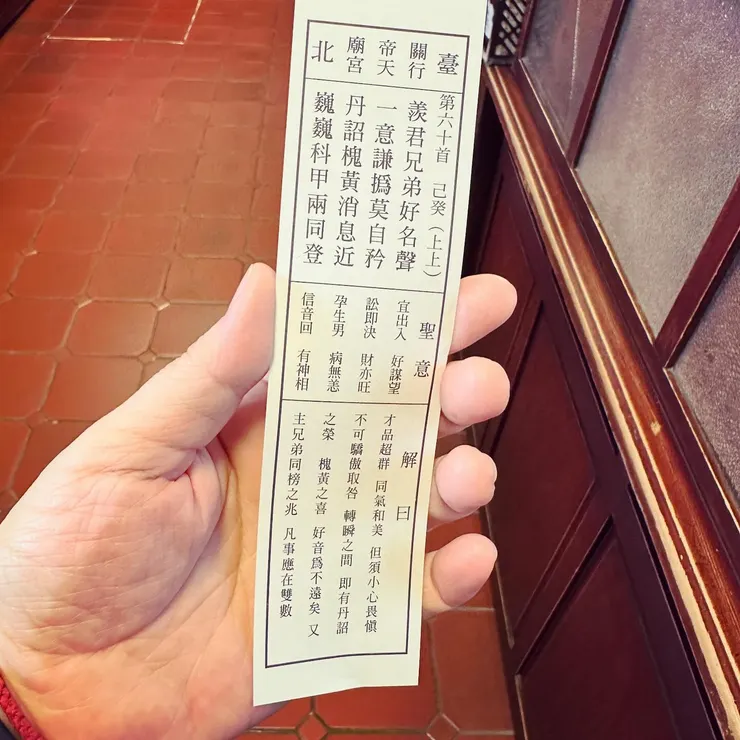 臺北
關帝廟
行天宮
第六十首 己癸(上上)
羨君兄弟好名聲
一意謙撝莫自矜
丹詔槐黃消息近
巍巍科甲兩同登
聖意
宜出入 好謀望
訟即決 財亦旺
孕生男 病無恙
信音回 有神相
解曰
才品超群 同氣和美 但須小心畏愼
不可驕傲取咎 轉瞬之間 即有丹詔
之榮 槐黃之喜 好音爲不遠矣 又
主兄弟同榜之兆 凡事應在雙數